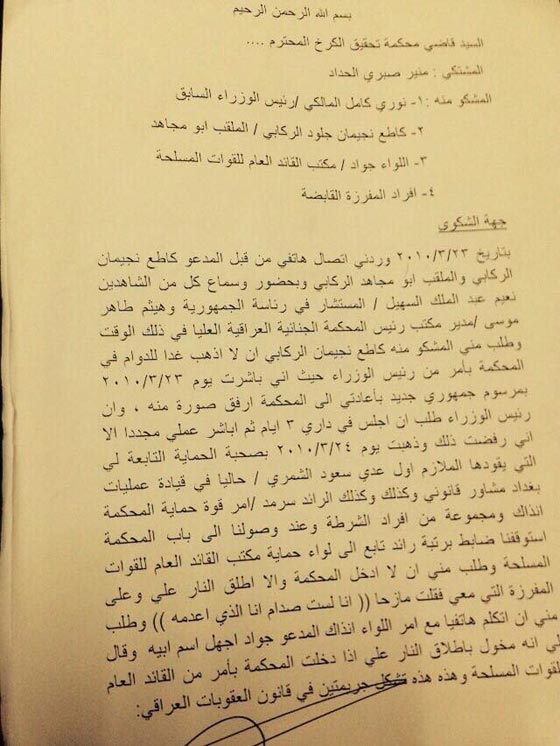 بسم الله الرحمن الرحيم
السيد قاضي محكمة تحقيق الكرخ المحترم ....
المشتكي : منير صبري الحداد
المشكو منه :١- نوري كامل المالكي /رئيس الوزراء السابق
٢- كاطع نجيمان جلود الركابي / الملقب ابو مجاهد
٣- اللواء جواد / مكتب القائد العام للقوات المسلحة
٤- افراد المفرزة القابضة
جهة الشكوى
بتاريخ ٢٠١٠/٣/٢٣ وردني اتصال هاتفي من قبل المدعو كاطع نجيمان
الركابي والملقب ابو مجاهد الركابي وبحضور وسماع كل من الشاهدين
نعيم عبد الملك السهيل / المستشار في رئاسة الجمهورية وهيثم طاهر
موسى /مدير مكتب رئيس المحكمة الجنائية العراقية العليا في ذلك الوقت
وطلب مني المشكو منه كاطع نجيمان الركابي ان لا اذهب غدا للدوام في
المحكمة بأمر من رئيس الوزراء حيث اني باشرت يوم ٢٠١٠/٣/٢٣
بمرسوم جمهوري جديد بأعادتي الى المحكمة ارفق صورة منه ، وان
رئيس الوزراء طلب ان اجلس في داري ٣ ايام ثم اباشر عملي مجددا الا
اني رفضت ذلك وذهبت يوم ٢٠١٠/٣/٢٤ بصحبة الحماية التابعة لي
التي يقودها الملازم اول عدي سعود الشمري / حاليا في قيادة عمليات
بغداد مشاور قانوني وكذلك وكذلك الرائد سرمد /امر قوة حماية المحكمة
انذاك ومجموعة من افراد الشرطة وعند وصولنا الى باب المحكمة
استوقفنا ضابط برتبة رائد تابع الى لواء حماية مكتب القائد العام للقوات
المسلحة وطلب مني ان لا ادخل المحكمة والا اطلق النار علي وعلى
المفرزة التي معي فقلت مازحا (( انا لست صدام انا الذي اعدمه )) وطلب
مني ان اتكلم هاتفيا مع امر اللواء انذاك المدعو جواد اجهل اسم ابيه وقال
لي انه مخول باطلاق النار علي اذا دخلت المحكمة بأمر من القائد العام
للقوات المسلحة وهذه هذه تشكل جريمتين في قانون العقوبات العراقي: